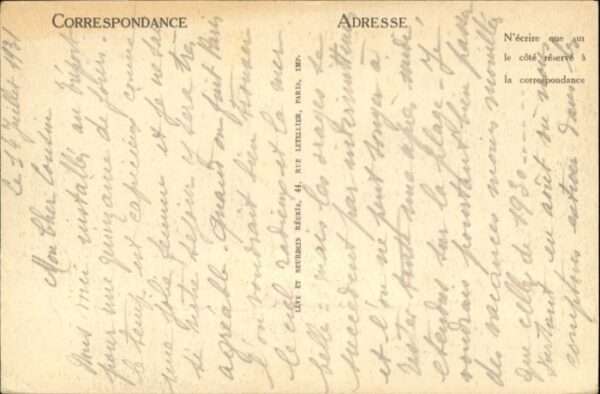 CORRESPONDANCE
ADRESSE
N'écrire que sur
le côté réservé à
la correspondance
LÉVY ET NEURDEIN RÉUNIS, 44, RUE LETELLIER, PARIS, IMP.
Le Juillet 1931
Mon Cher Cousin
Nous voici installés au Tréport
pour une quinzaine de jours.
Le temps est capricieux comme
une jolie femme et je ne sais
si notre séjour y sera très
agréable. Quand on fuit Paris
l'on voudrait bien trouver
le ciel radieux et la mer
belle - mais les orages se
succèdent par intermittence
et l'on ne peut songer à
rester toute une après midi
étendus sur la plage - Je
voudrais pourtant bien passer
des vacances moins mouillées
que celles de 1930
Surtout en août où nous
comptons